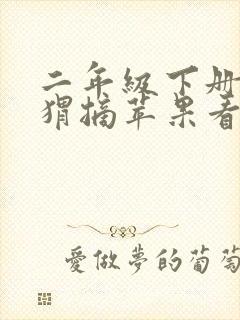 二年级下册
猬摘苹果看
愛做夢的葡萄